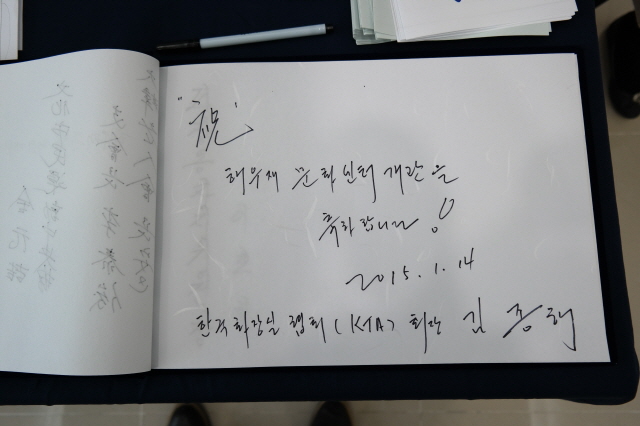 "祝"
해우재 문화센터 개관을
축하합니다!
2015. 1. 14
한국화장실협회(KTA) 회장 김종해